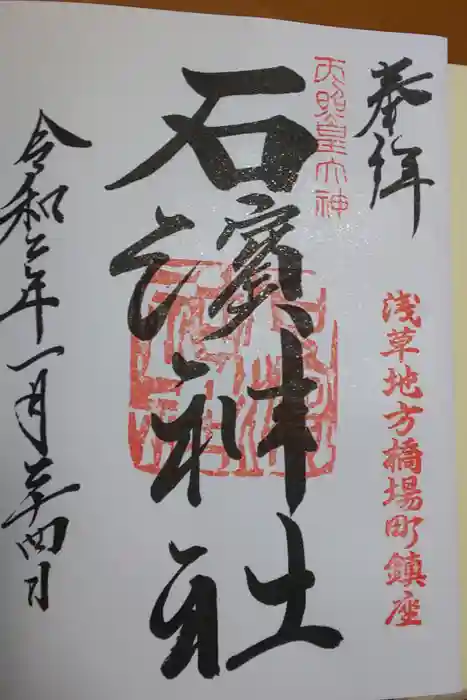 奉拝
浅草地方橋場町鎮座
天照皇大神
石濱神社
令和二年一月二十四日